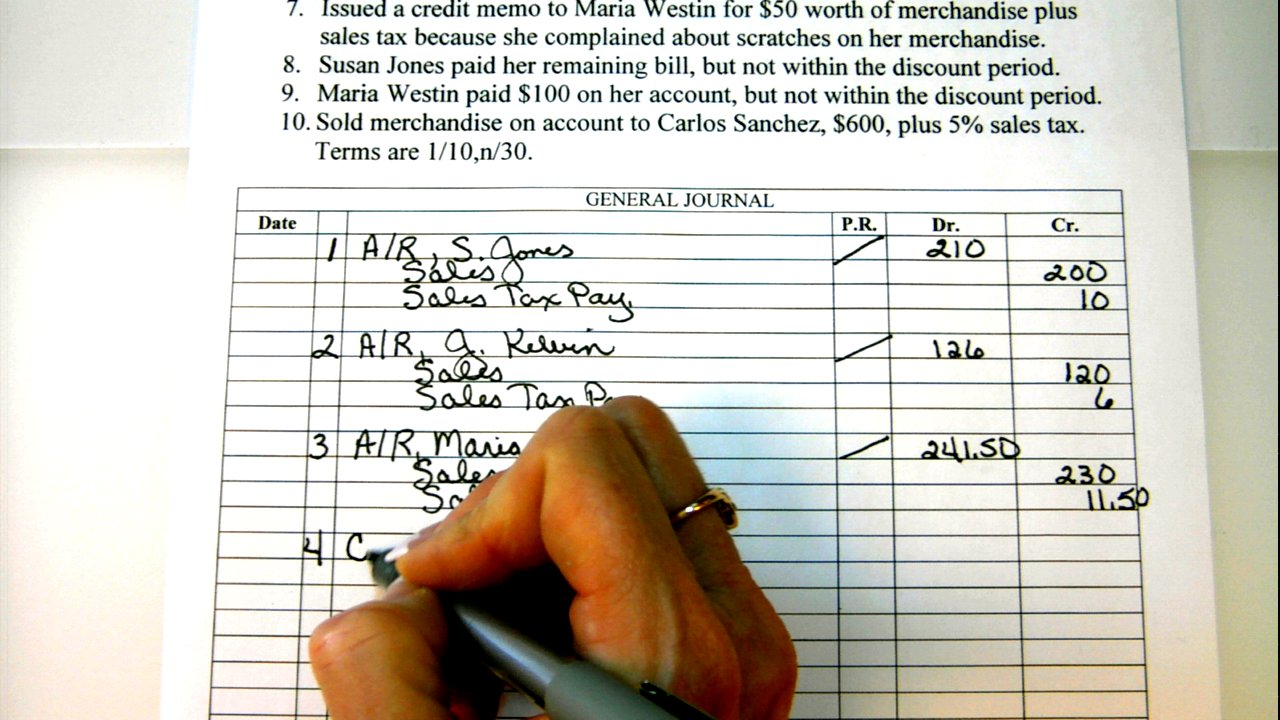 7. Issued a credit memo to Maria Westin for $50 worth of merchandise plus
sales tax because she complained about scratches on her merchandise.
8. Susan Jones paid her remaining bill, but not within the discount period.
9. Maria Westin paid $100 on her account, but not within the discount period.
10. Sold merchandise on account to Carlos Sanchez, $600, plus 5% sales tax.
Terms are 1/10,n/30.
GENERAL JOURNAL
Date P.R. Dr. Cr.
1 A/R, S. Jones 210
Sales 200
Sales Tax Pay. 10
2 A/R, J. Kelvin 126
Sales 120
Sales Tax 6
3 A/R, Maria 241.50
Sales 230
11.50
4